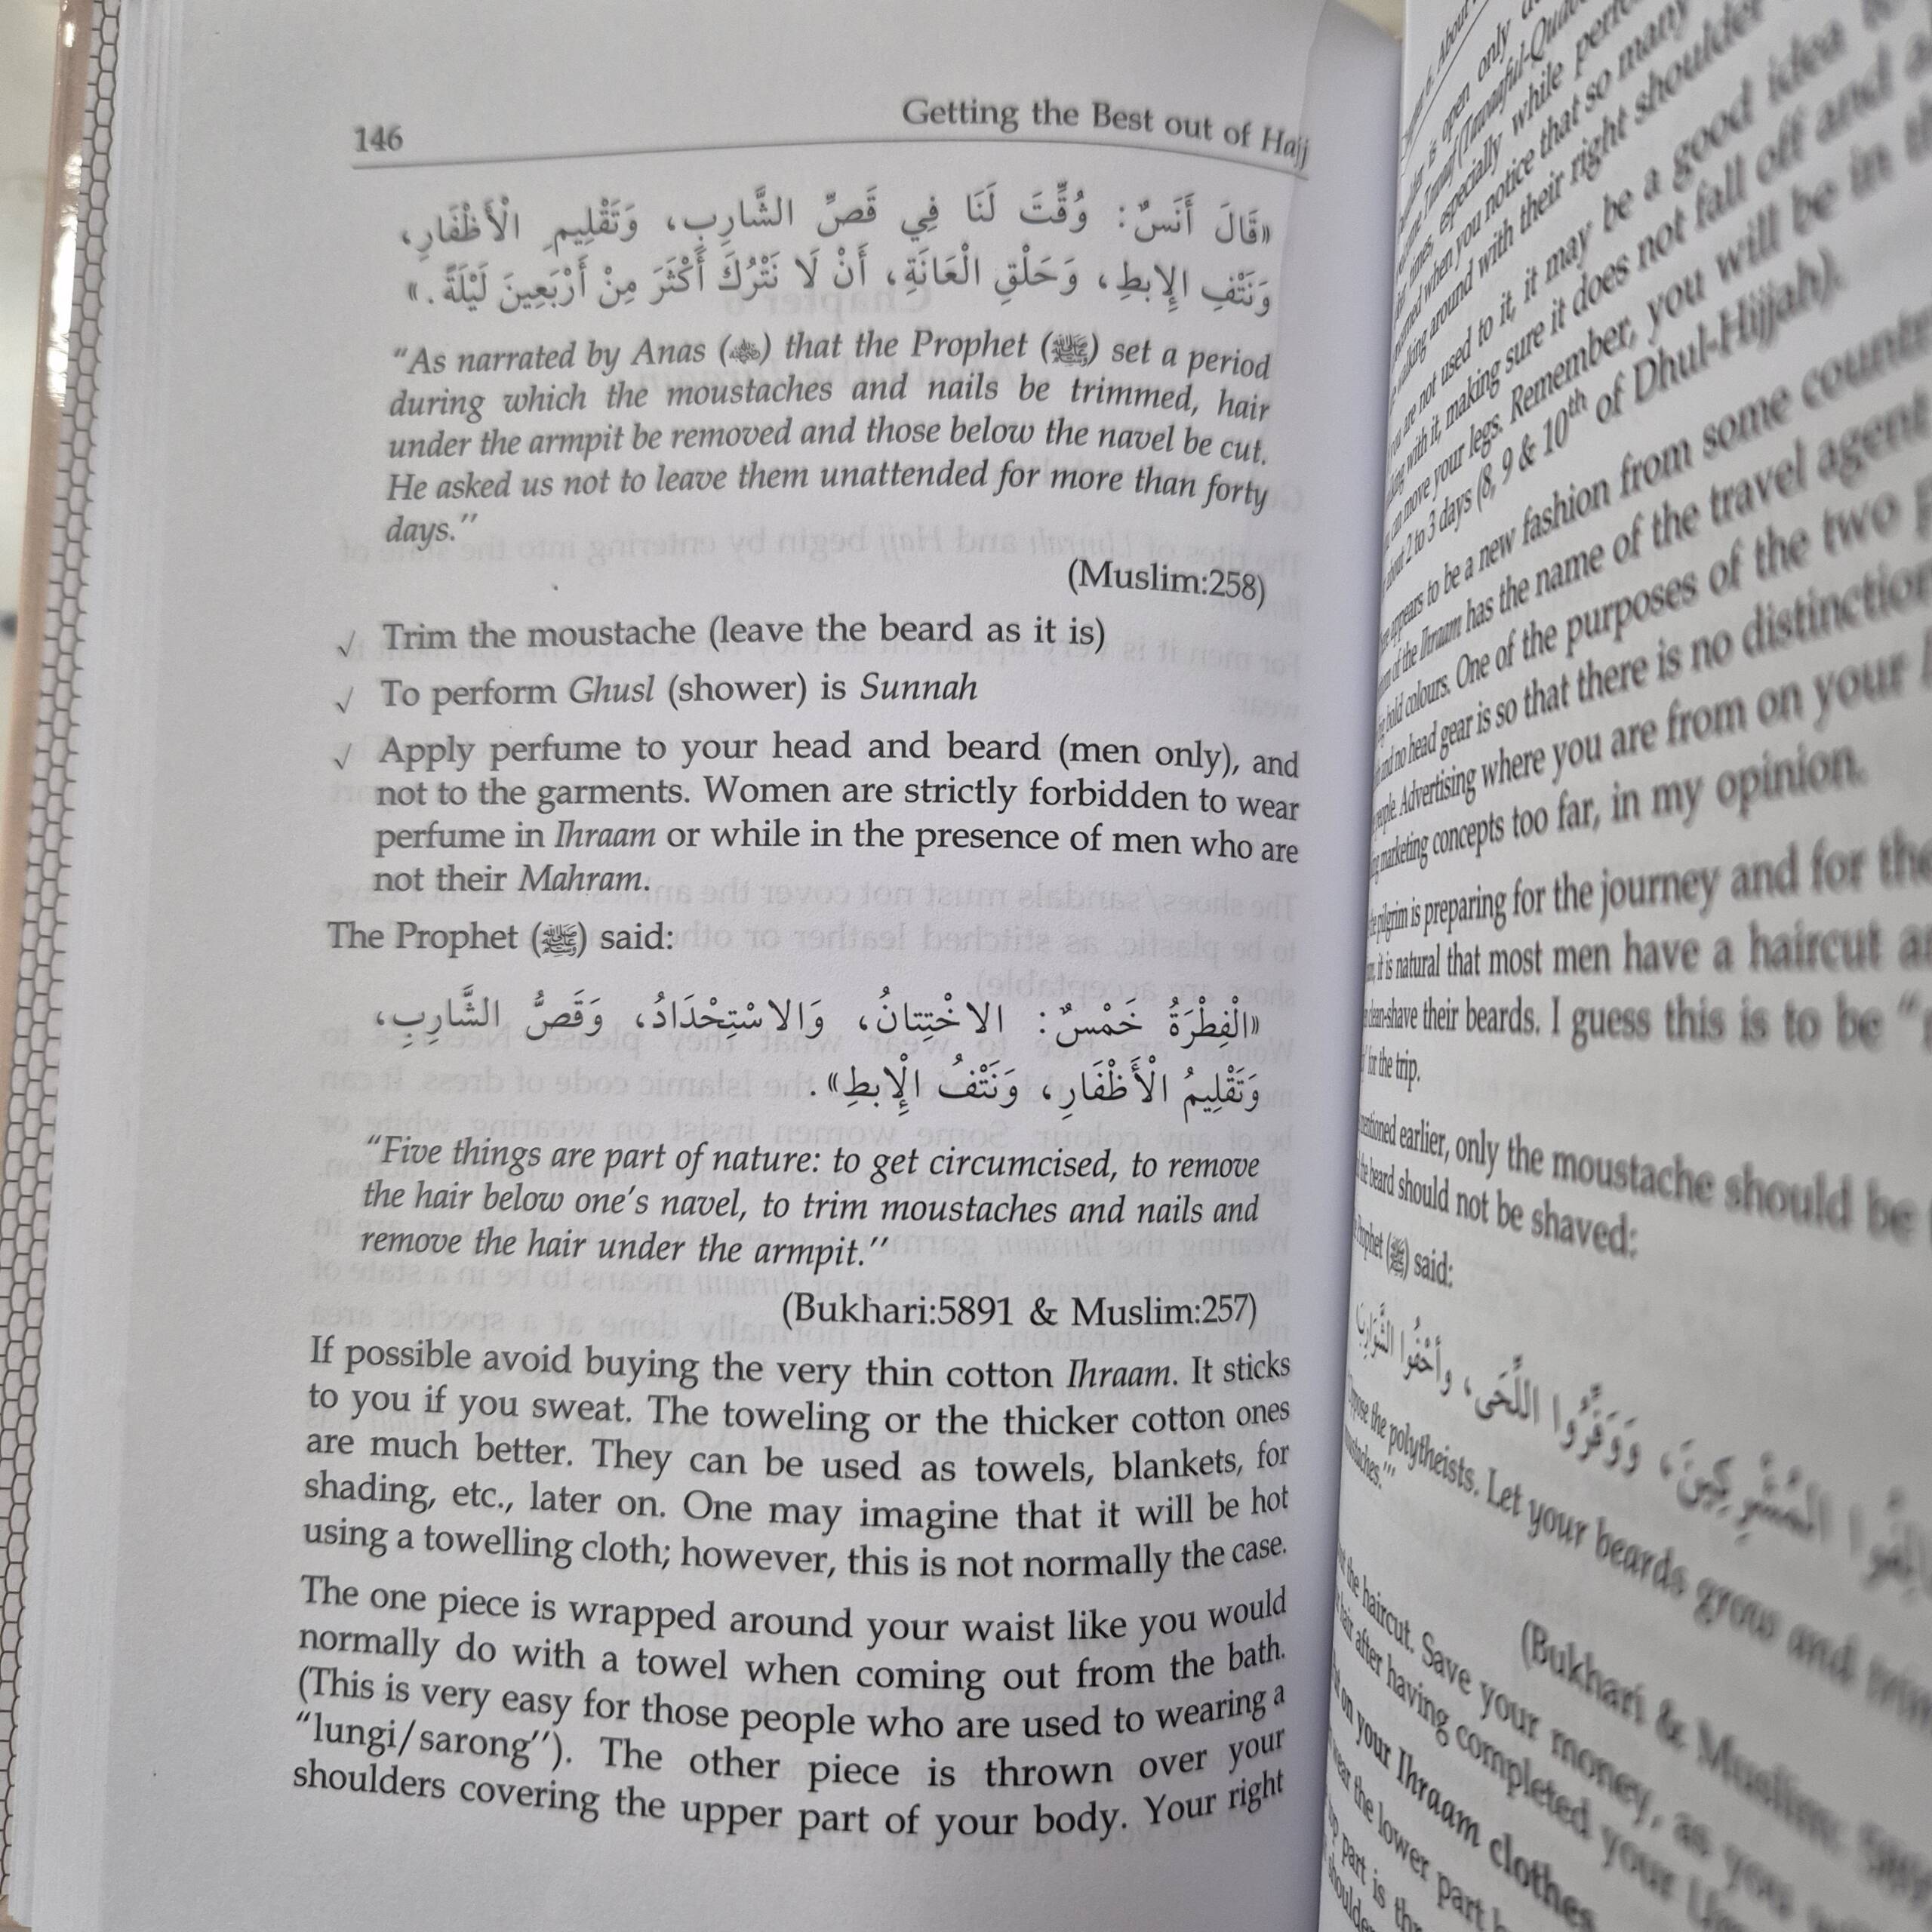 146
Getting the Best out of Hajj
«قَالَ أَنَسٌ: وُقِّتَ لَنَا فِي قَصِّ الشَّارِبِ، وَتَقْلِيمِ الْأَظْفَارِ،
وَنَتْفِ الإِبطِ، وَحَلْقِ الْعَانَةِ، أَنْ لَا نَتْرُكَ أَكْثَرَ مِنْ أَرْبَعِينَ لَيْلَةً.»
“As narrated by Anas (رضي الله عنه) that the Prophet (ﷺ) set a period
during which the moustaches and nails be trimmed, hair
under the armpit be removed and those below the navel be cut.
He asked us not to leave them unattended for more than forty
days.’’
(Muslim:258)
√ Trim the moustache (leave the beard as it is)
√ To perform Ghusl (shower) is Sunnah
√ Apply perfume to your head and beard (men only), and
not to the garments. Women are strictly forbidden to wear
perfume in Ihraam or while in the presence of men who are
not their Mahram.
The Prophet (ﷺ) said:
«الْفِطْرَةُ خَمْسٌ: الاخْتِتَانُ، وَالاسْتِحْدَادُ، وَقَصُّ الشَّارِبِ،
وَتَقْلِيمُ الْأَظْفَارِ، وَنَتْفُ الْإِبطِ».
“Five things are part of nature: to get circumcised, to remove
the hair below one’s navel, to trim moustaches and nails and
remove the hair under the armpit.’’
(Bukhari:5891 & Muslim:257)
If possible avoid buying the very thin cotton Ihraam. It sticks
to you if you sweat. The toweling or the thicker cotton ones
are much better. They can be used as towels, blankets, for
shading, etc., later on. One may imagine that it will be hot
using a towelling cloth; however, this is not normally the case.
The one piece is wrapped around your waist like you would
normally do with a towel when coming out from the bath.
(This is very easy for those people who are used to wearing a
“lungi/sarong’’). The other piece is thrown over your
shoulders covering the upper part of your body. Your right
is open only
especially while
when you notice that so many
around with their right shoulder
are not used to it, it may be a good idea to
with it, making sure it does not fall off and
can move your legs. Remember, you will be in
about 2 to 3 days (8, 9 & 10th of Dhul-Hijjah).
appears to be a new fashion from some
of the Ihraam has the name of the travel agent
bold colours. One of the purposes of the two
and no head gear is so that there is no distinction
people. Advertising where you are from on your
marketing concepts too far, in my opinion.
pilgrim is preparing for the journey and for the
it is natural that most men have a haircut
clean-shave their beards. I guess this is to be
for the trip.
mentioned earlier, only the moustache should be
the beard should not be shaved:
Prophet (ﷺ) said:
الْمُشْرِكِينَ، وَوَفِّرُوا اللِّحَى، وأَحْفُوا الشَّوَارِبَ
the polytheists. Let your beards grow and trim
moustaches.’’’
(Bukhari & Muslim:
the haircut. Save your money, as you
hair after having completed your
on your Ihraam clothes
wear the lower part
part is